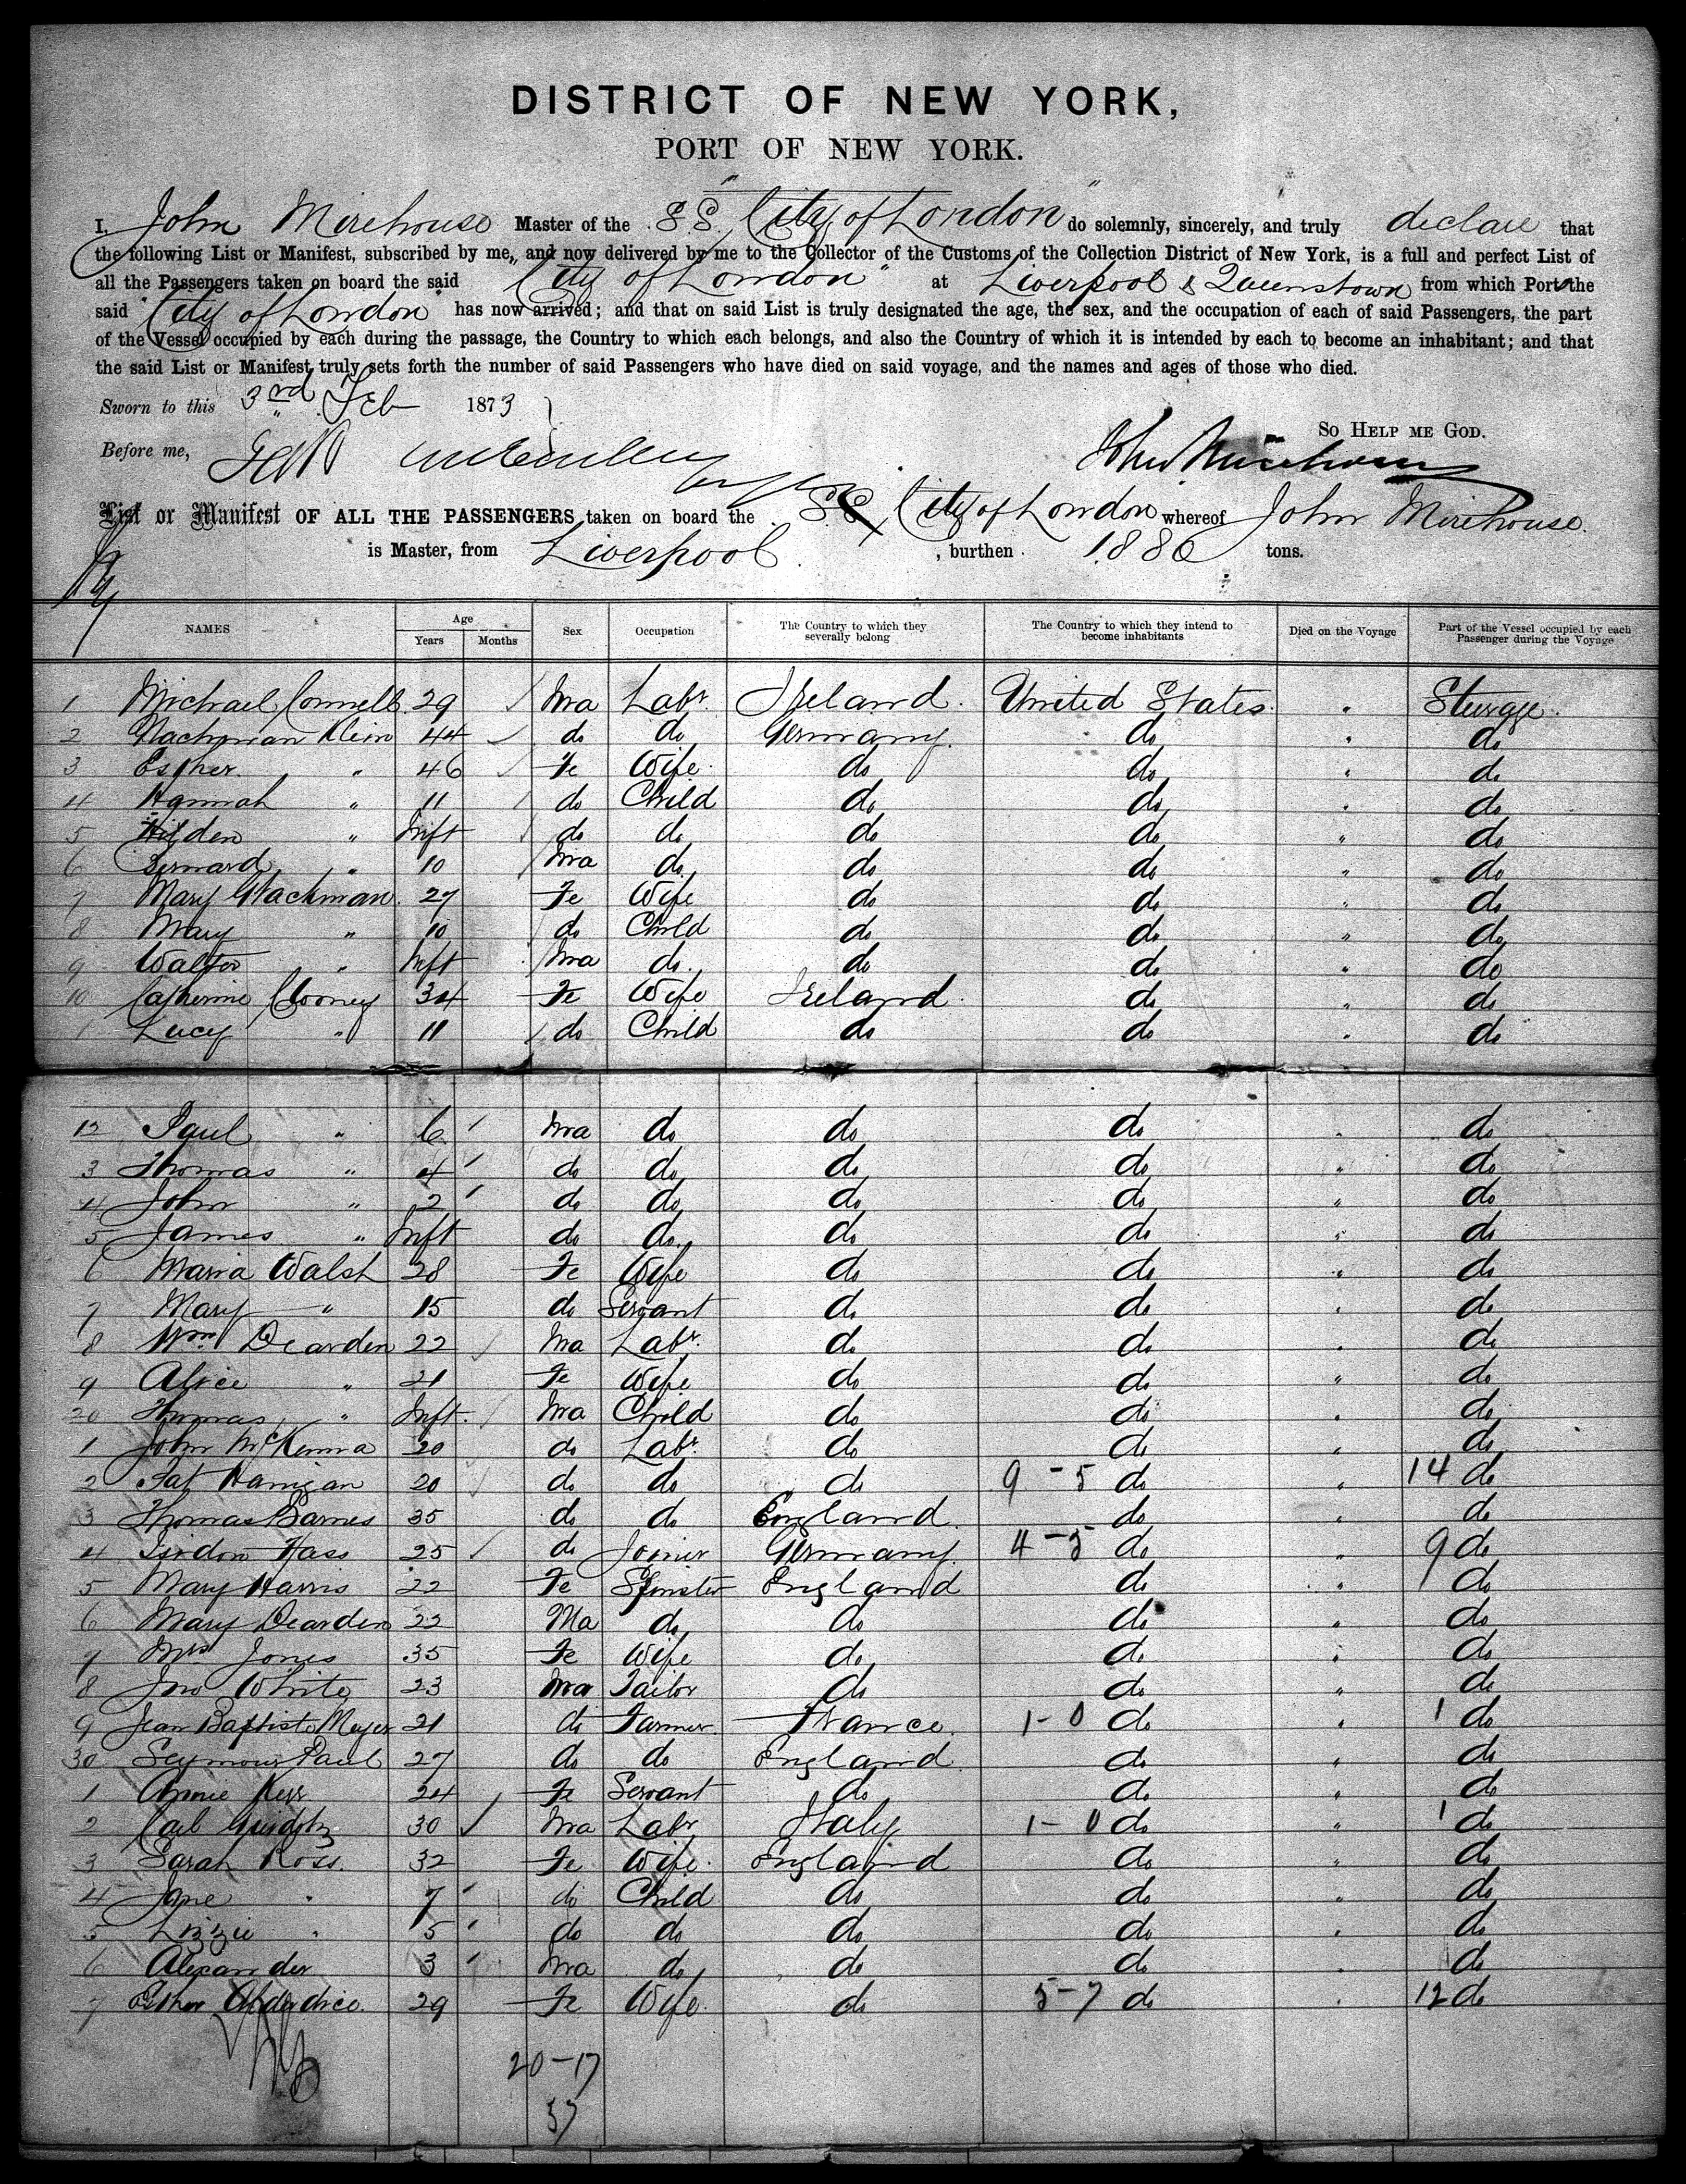 DISTRICT OF NEW YORK,
PORT OF NEW YORK.
I, John Mirehouse Master of the S.S. "City of London" do solemnly, sincerely, and truly declare that
the following List or Manifest, subscribed by me, and now delivered by me to the Collector of the Customs of the Collection District of New York, is a full and perfect List of
all the Passengers taken on board the said "City of London" at Liverpool & Queenstown from which Port the
said "City of London" has now arrived; and that on said List is truly designated the age, the sex, and the occupation of each of said Passengers, the part
of the Vessel occupied by each during the passage, the Country to which each belongs, and also the Country of which it is intended by each to become an inhabitant; and that
the said List or Manifest truly sets forth the number of said Passengers who have died on said voyage, and the names and ages of those who died.
Sworn to this 3rd Feb 1873
So Help me God.
Before me, John Mirehouse
List or Manifest OF ALL THE PASSENGERS taken on board the SS City of London whereof John Mirehouse
is Master, from Liverpool, burthen 1880 tons.
NAMES Age Years Months Sex Occupation The Country to which they severally belong The Country to which they intend to become inhabitants Died on the Voyage Part of the Vessel occupied by each Passenger during the Voyage
1 Michael Connell 29 Ma Labr Ireland United States " Sterage
2 Nachman Klein 44 do do Germany do " do
3 Esther " 46 Fe Wife do do " do
4 Hannah " 11 do Child do do " do
5 Hilden " Inft do do do do " do
6 Bernard " 10 Ma do do do " do
7 Mary Nachman 27 Fe Wife do do " do
8 Mary " 10 do Child do do " do
9 Walter " Inft Ma do do do " do
10 Catherine Clooney 34 Fe Wife Ireland do " do
1 Lucy " 11 do Child do do " do
12 Paul " 6 Ma do do do " do
3 Thomas " 4 do do do do " do
4 John " 2 do do do do " do
5 James " Inft do do do do " do
6 Maria Walsh 28 Fe Wife do do " do
7 Mary " 15 do Servant do do " do
8 Wm Dearden 22 Ma Labr do do " do
9 Alice " 21 Fe Wife do do " do
20 Thomas " Inft Ma Child do do " do
1 John McKenna 20 do Labr do do " do
2 Pat Hanigan 20 do do do 9-5 do " 14 do
3 Thomas Barnes 35 do do England do " do
4 Isidon Hass 25 do Joiner Germany 4-5 do " 9 do
5 Mary Harris 22 Fe Spinster England do " do
6 Mary Dearden 22 Ma do do do " do
7 Mrs Jones 35 Fe Wife do do " do
8 Jno White 23 Ma Tailor do do " do
9 Jean Baptiste Meyer 21 do Farmer France 1-0 do " 1 do
30 Seymour Paul 27 do do England do " do
1 Annie Kerr 24 Fe Servant do do " do
2 Carl 30 Ma Labr Italy 1-0 do " 1 do
3 Sarah Ross 32 Fe Wife England do " do
4 Jane " 7 do Child do do " do
5 Lizzie " 5 do do do do " do
6 Alexander 3 Ma do do do " do
7 Esther 29 Fe Wife do 5-7 do " 12 do
20-17
37